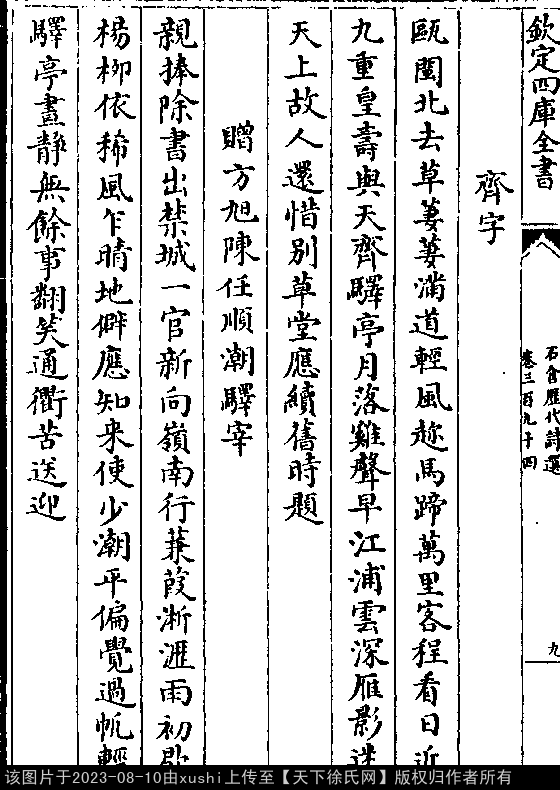 欽定四庫全書
石倉歷代詩選
卷三百九十四
九
齊字
甌閩北去草萋萋滿道輕風趂馬蹄萬里客程看日近
九重皇壽與天齊驛亭月落雞聲早江浦雲深雁影迷
天上故人還惜别草堂應續舊時題
贈方旭陳任順潮驛宰
親捧除書出禁城一官新向嶺南行蒹葭淅瀝雨初
楊柳依稀風乍晴地僻應知来使少潮平偏覺過帆輕
驛亭晝静無餘事翻笑通衢苦送迎
该图片于2023-08-10由xushi上传至【天下徐氏网】版权归作者所有